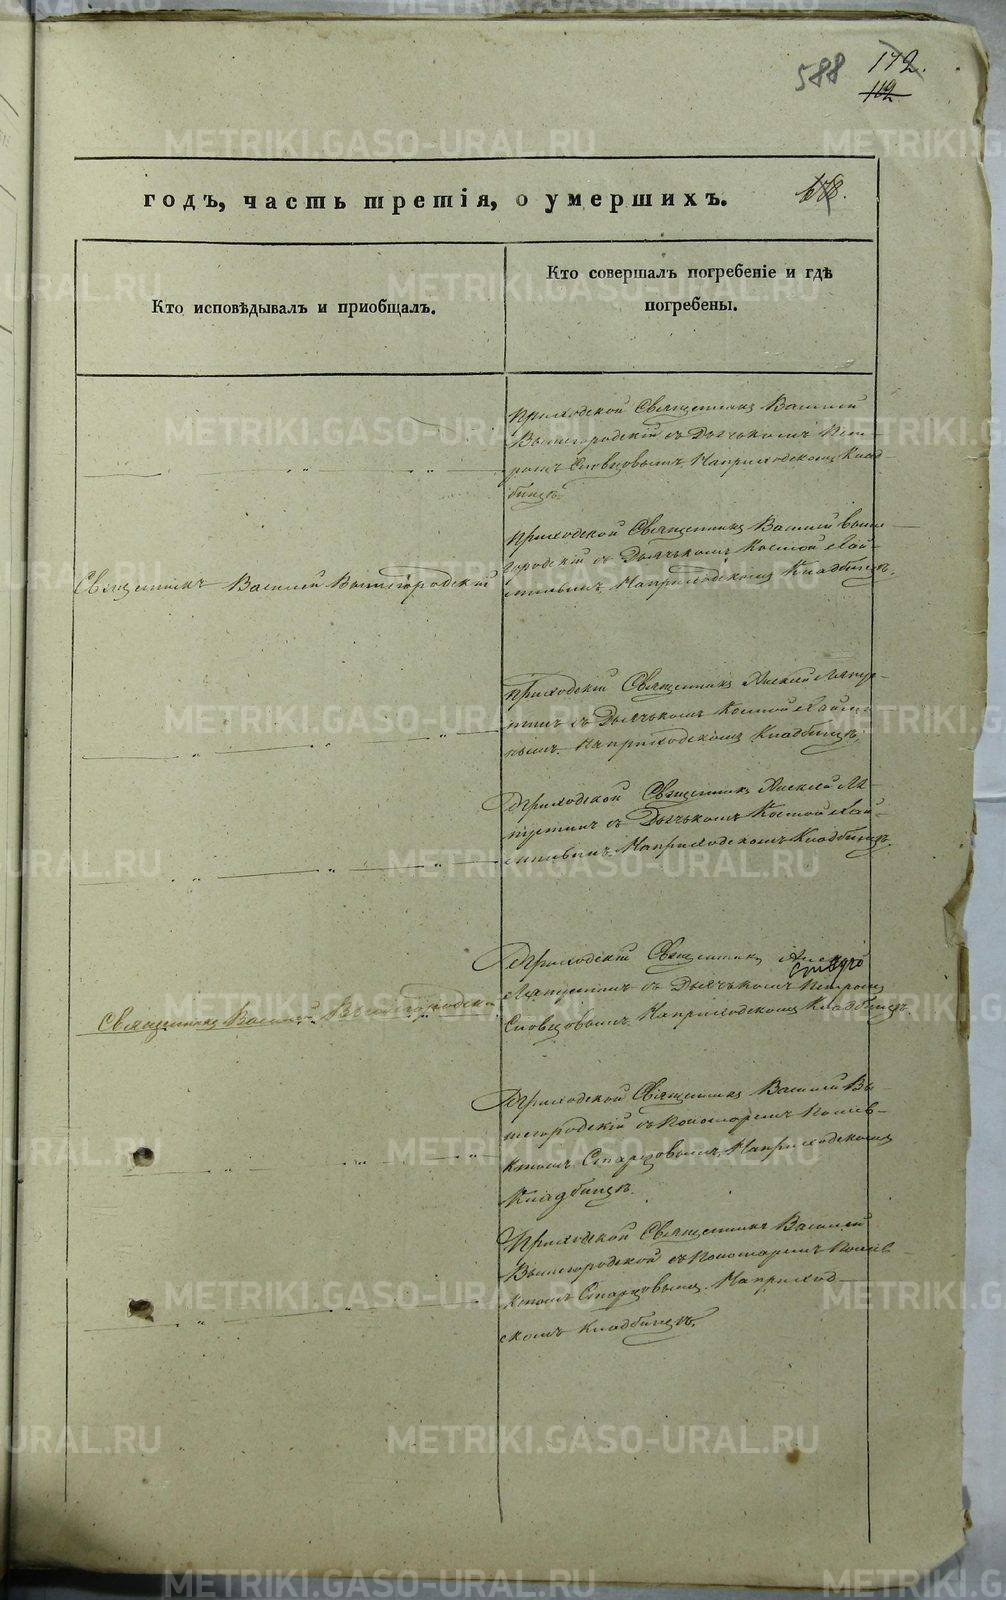 588 172.
112
годъ, часть третія, о умершихъ.
678.
Кто исповѣдывалъ и приобщалъ.
Кто совершалъ погребеніе и гдѣ
погребены.
Приходской Священникъ Василій
Вышегородскій съ Дьячькомъ Пет-
ромъ Словцовымъ. Наприходскомъ Клад-
бищѣ.
Священникъ Василій Вышегородскій
Приходской Священникъ Василій Выше
городскій съ Дьячькомъ
Наприходскомъ Кладбищѣ.
Приходскій Священникъ Алексей Ляпус-
тинъ съ Дьячькомъ
Наприходскомъ Кладбищѣ.
Приходской Священникъ Алексей Ля-
пустинъ съ Дьячькомъ
Наприходскомъ Кладбищѣ.
Священникъ Василій Вышегородской
Приходскій Священникъ
Ляпустинъ съ Дьячькомъ Петромъ
Словцовымъ. Наприходскомъ Кладбищѣ
Приходской Священникъ Василій Вы-
шегородскій съ Пономаремъ Поліев-
ктомъ Старцовымъ. Наприходскомъ
Кладбищѣ.
Приходской Священникъ Василій
Вышегородской съ Пономаремъ Поліев-
ктомъ Старцовымъ. Наприход-
скомъ Кладбищѣ.
METRIKI.GASO-URAL.RU